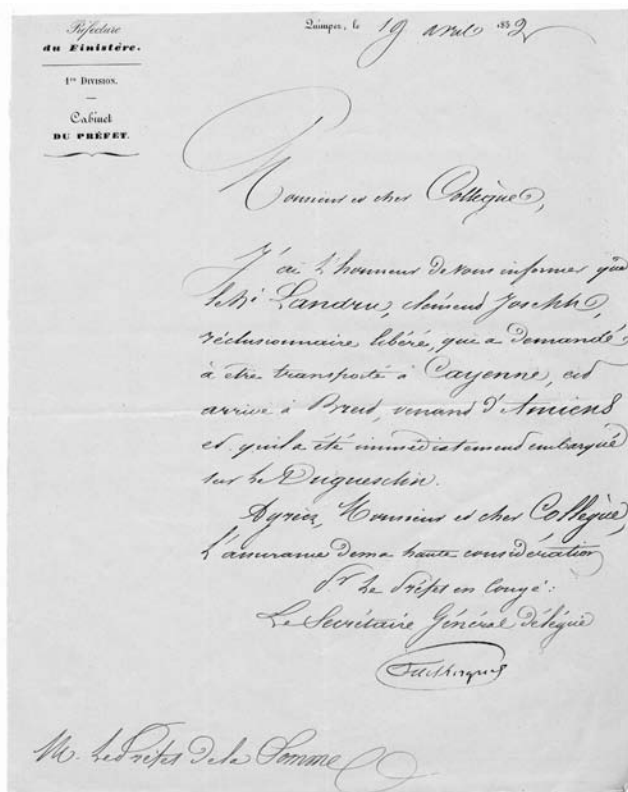 Préfecture
du Finistère.
1re DIVISION.
Cabinet
DU PRÉFET.
Quimper, le 19 avril 1852
Monsieur et cher Collègue,
J'ai l'honneur de vous informer que
le Sr Landru, Clément Joseph,
réclusionnaire libéré, qui a demandé
à être transporté à Cayenne, est
arrivé à Brest, venant d'Amiens
et qu'il a été immédiatement embarqué
sur le Duguesclin.
Agréez, Monsieur et cher Collègue,
l'assurance de ma haute considération
Pr Le Préfet en congé :
Le Secrétaire Général délégué
M. Le Préfet de la Somme